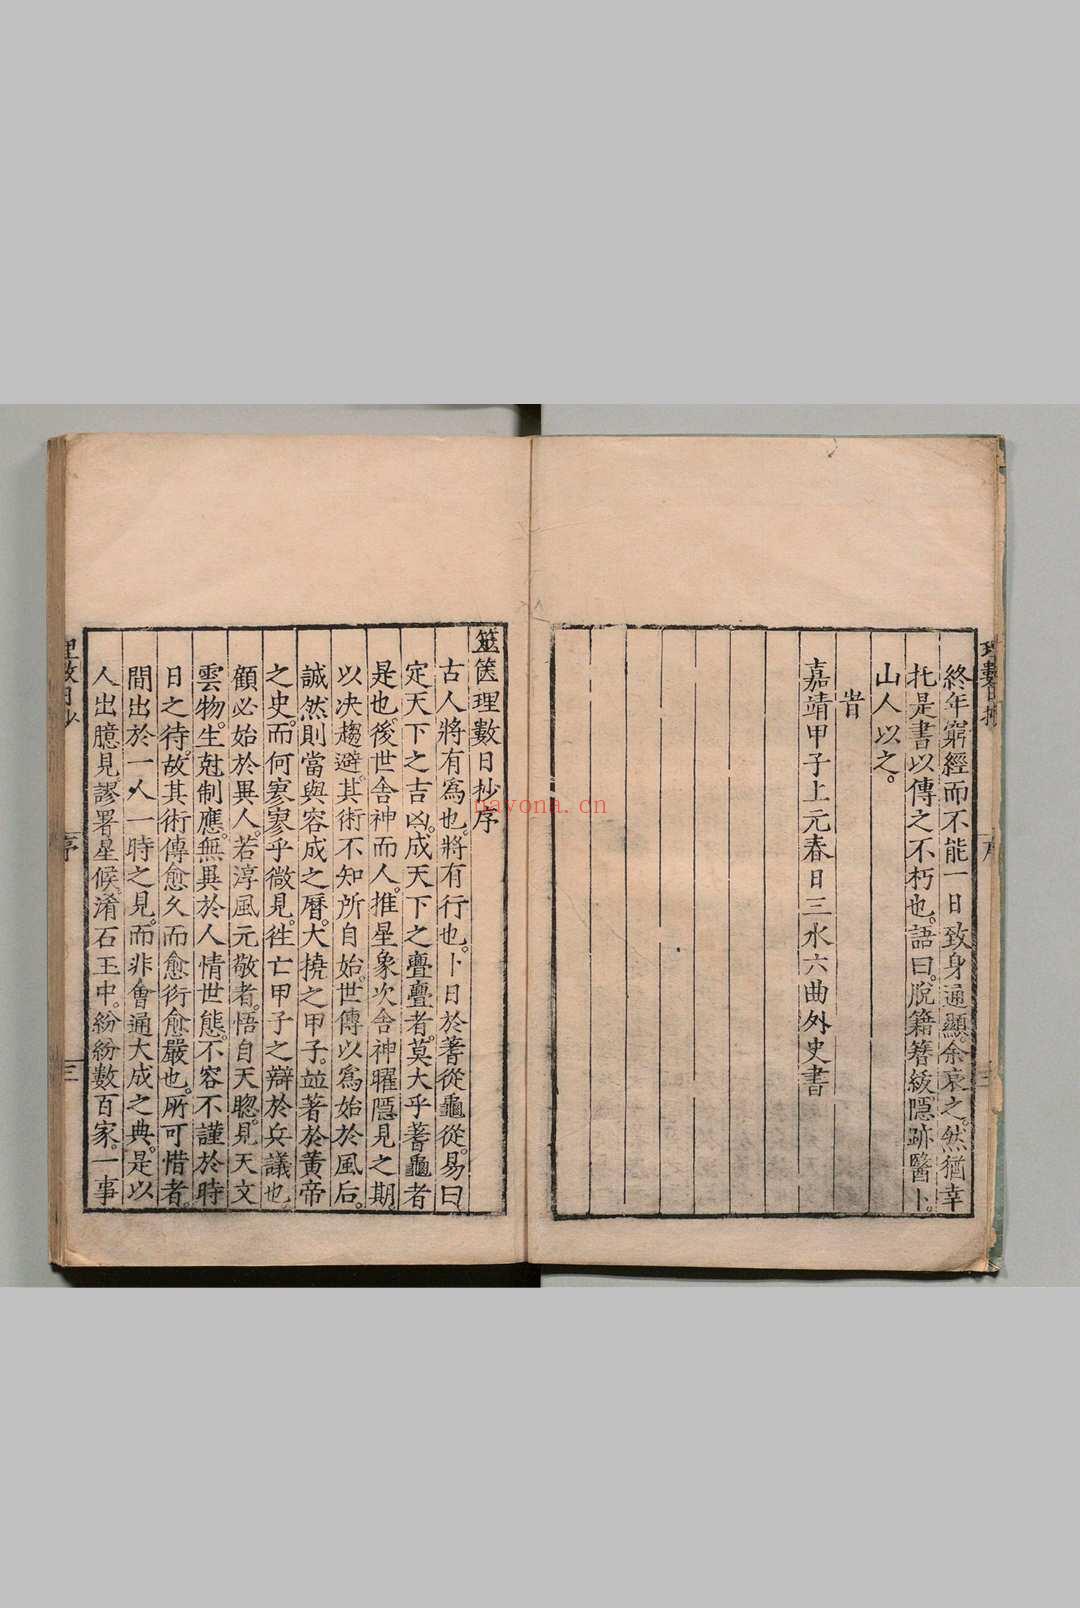 終年窮經而不能一日致身通顯。余哀之。然猶幸
托是書以傳之不朽也。語曰。脫籍簪紱。隱跡醫卜。
山人以之。
旹
嘉靖甲子上元春日三水六曲外史書
序
三
筮篋理數日抄序
古人將有爲也。將有行也。卜日於蓍從龜從。易曰
定天下之吉凶。成天下之亹亹者。莫大乎蓍龜者
是也。後世舍神而人。推星象次舍神曜隱見之期。
以決趨避。其術不知所自始。世傳以爲始於風后。
誠然則當與容成之曆。大撓之甲子。並著於黃帝
之史。而何寥寥乎微見。徃亡甲子之辯於兵議也。
顧必始於異人。若淳風元敬者。悟自天聦。見天文
雲物。生尅制應。無異於人情世態。不容不謹於時
日之待。故其術傳愈久而愈衍愈嚴也。所可惜者。
間出於一人一時之見。而非會通大成之典。是以
人出臆見。謬署星候。淆石玉中。紛紛數百家。一事
理數日抄
序
三
navona.cn